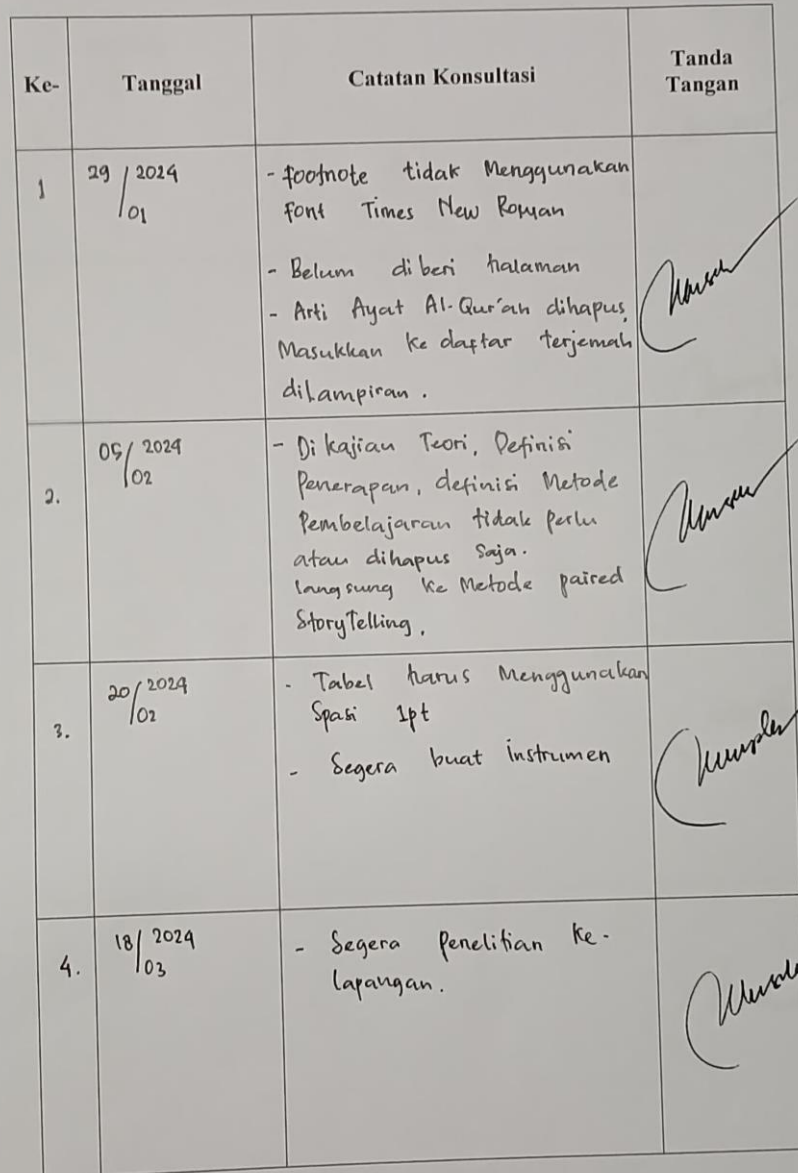 Ke-
Tanggal
Catatan Konsultasi
Tanda
Tangan
1
29/01 2024
- footnote tidak Menggunakan
font Times New Roman
- Belum diberi halaman
- Arti Ayat Al-Qur'an dihapus,
Masukkan ke daftar terjemah
dilampiran.
2.
05/02 2024
- Di kajian Teori, Definisi
Penerapan, definisi Metode
Pembelajaran tidak perlu
atau dihapus saja.
langsung ke Metode paired
StoryTelling.
3.
20/02 2024
- Tabel harus Menggunakan
Spasi 1pt
- Segera buat instrumen
4.
18/03 2024
- Segera Penelitian Ke-
lapangan.